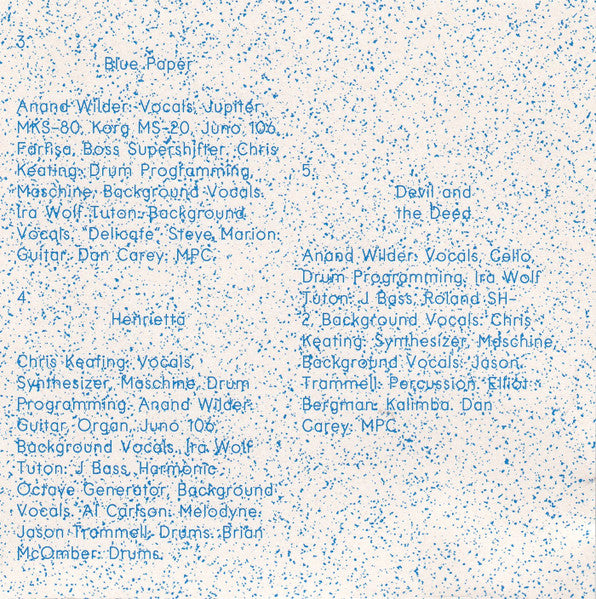 3.
Blue Paper
Anand Wilder: Vocals, Jupiter
MKS-80, Korg MS-20, Juno 106,
Farfisa, Boss Supershifter. Chris
Keating: Drum Programming,
Maschine, Background Vocals.
Ira Wolf Tuton: Background
Vocals. "Delicate" Steve Marion:
Guitar. Dan Carey: MPC.
4.
Henrietta
Chris Keating: Vocals,
Synthesizer, Maschine, Drum
Programming. Anand Wilder:
Guitar, Organ, Juno 106,
Background Vocals. Ira Wolf
Tuton: J Bass, Harmonic
Octave Generator, Background
Vocals. Al Carlson: Melodyne.
Jason Trammell: Drums. Brian
McOmber: Drums.
5.
Devil and
the Deed
Anand Wilder: Vocals, Cello,
Drum Programming. Ira Wolf
Tuton: J Bass, Roland SH-
2, Background Vocals. Chris
Keating: Synthesizer, Maschine,
Background Vocals. Jason
Trammell: Percussion. Elliot
Bergman: Kalimba. Dan
Carey: MPC.